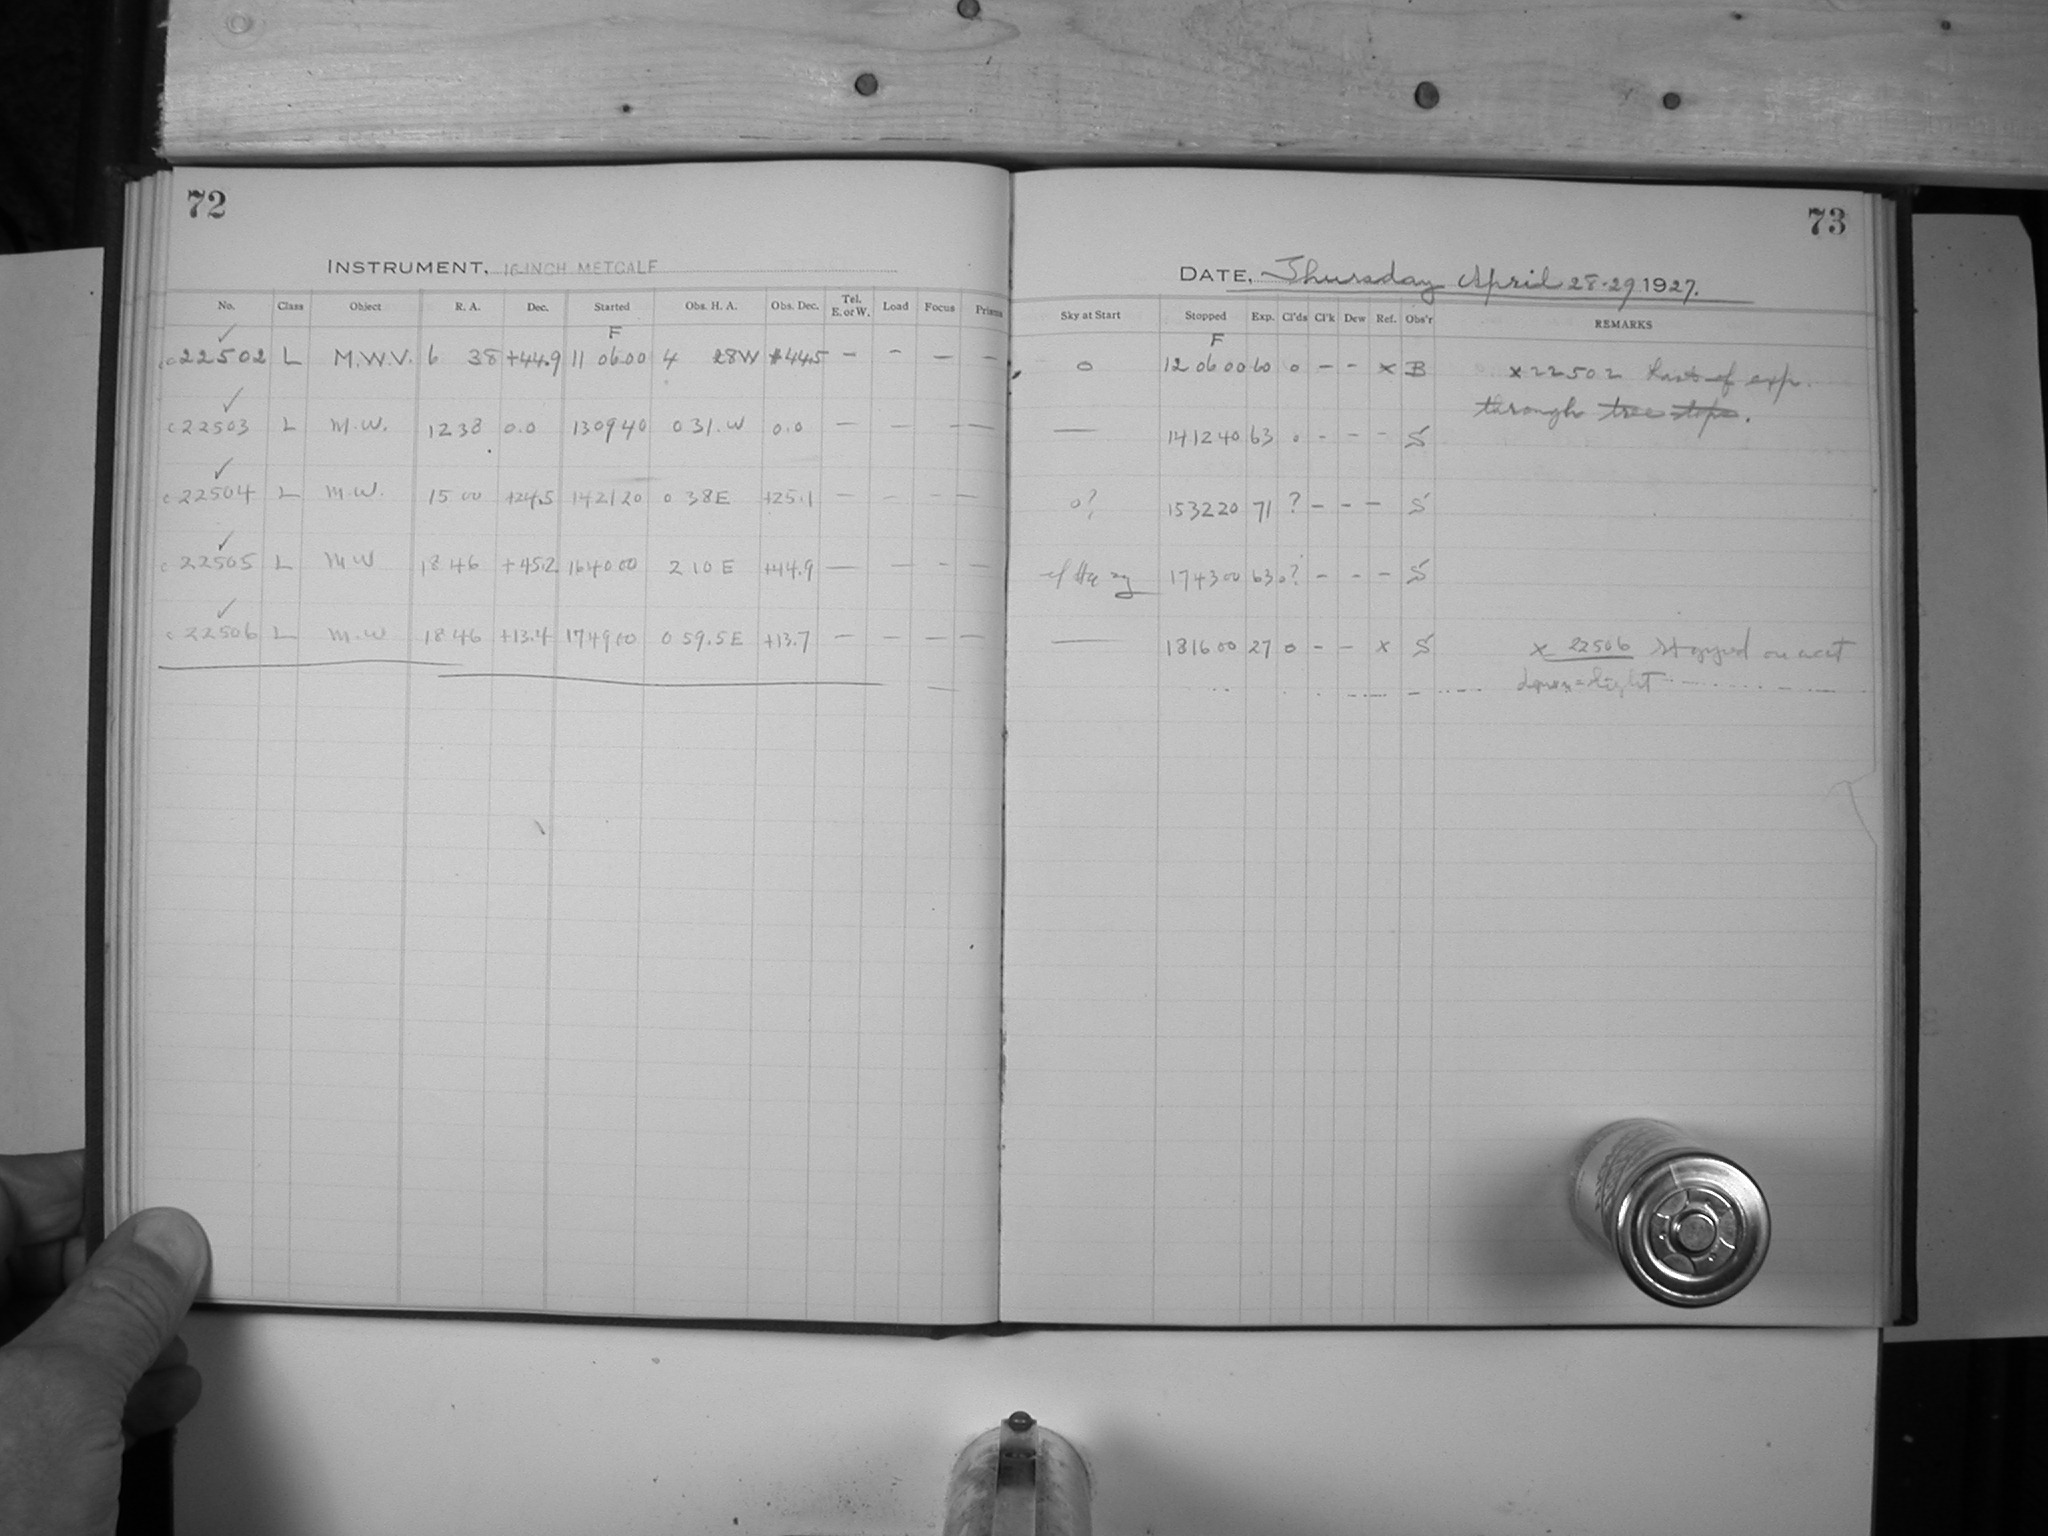 72
INSTRUMENT, 16-INCH METCALF
No. Class Object R. A. Dec. Started Obs. H. A. Obs. Dec. Tel. E. or W. Load Focus Prisms
F
c22502 L M.W.V. 6 38 +44.9 11 06 00 4 28W +44.5 — — — —
c22503 L M.W. 12 38 0.0 13 09 40 0 31.W 0.0 — — — —
c22504 L M.W. 15 00 +24.5 14 21 20 0 38E +25.1 — — — —
c22505 L M W 18 46 +45.2 16 40 00 2 10 E +44.9 — — — —
c22506 L M.W 18 46 +13.4 17 49 00 0 59.5E +13.7 — — — —
73
DATE, Thursday April 28-29 1927.
Sky at Start Stopped Exp. Cl'ds Cl'k Dew Ref. Obs'r REMARKS
F
0 12 06 00 60 0 — — x B x 22502 Last of exp.
through tree tops.
— 14 12 40 63 0 - - - S
0? 15 32 20 71 ? - - - S
17 43 00 63 0? - - - S
— 18 16 00 27 0 - - x S x 22506 Stopped on acct
light